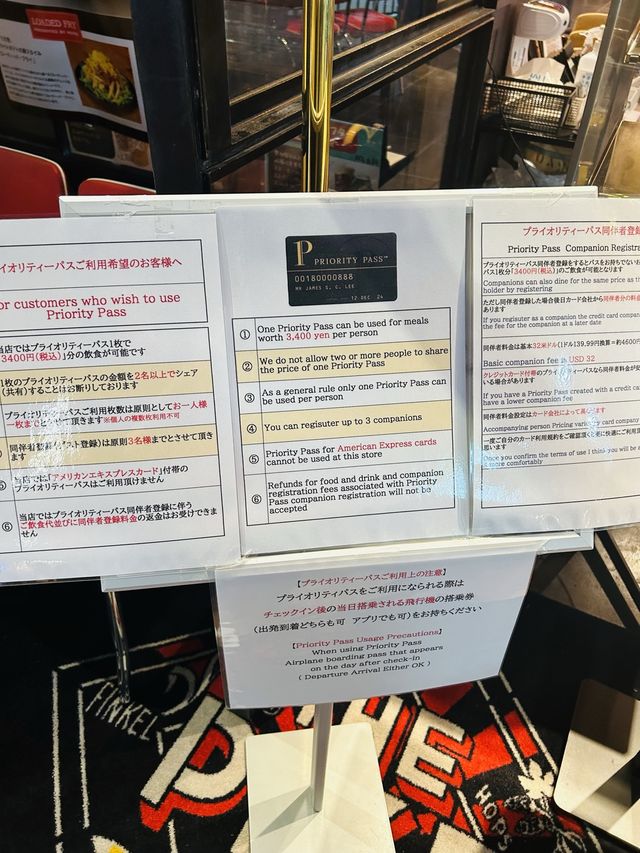 LOADED FRY
プライオリティーパスご利用希望のお客様へ
or customers who wish to use
Priority Pass
当店ではプライオリティーパス1枚で
3400円(税込)」分の飲食が可能です
1枚のプライオリティーパスの金額を2名以上でシェア
(共有)することはお断りしております
プライオリティーパスご利用枚数は原則としてお一人様
一枚までとさせて頂きます※個人の複数枚利用不可
登録)は原則3名様までとさせて頂き
ます
⑤
当店では「アメリカンエキスプレスカード」付帯の
プライオリティーパスはご利用頂けません
⑥
当店ではプライオリティーパス同伴者登録に伴う
ご飲食代並びに同伴者登録料金の返金はお受けできま
せん
P PRIORITY PASS™
00180000888
MR JAMES C. C. LEE
12 DEC 24
① One Priority Pass can be used for meals
worth 3,400 yen per person
② We do not allow two or more people to share
the price of one Priority Pass
③ As a general rule only one Priority Pass can
be used per person
④ You can regisuter up to 3 companions
⑤ Priority Pass for American Express cards
cannot be used at this store
⑥ Refunds for food and drink and companion
registration fees associated with Priority
Pass companion registration will not be
accepted
プライオリティーパス同伴者登録
Priority Pass Companion Registr
プライオリティーパスご登録をするとパスをお持ちでないお
パス1枚分「3400円(税込)」のご飲食が可能となります
Companions can also dine for the same price as th
holder by registering
ただし同伴者登録した場合後日カード会社から同伴者分の料金
あります
If you regisuter as a companion the credit card compan
the fee for the companion at a later date
同伴者料金は基本32米ドル(1ドル139,99円換算=約4600円
Basic companion fee is USD 32
クレジットカード付帯のプライオリティーパスなら同伴者料金が
いる場合があります
If you have a Priority Pass created with a credit car
have a lower companion fee
同伴者料金設定はカード会社によって異なります
Accompanying person Pricing varies by card compan
一度ご自分のカード利用規約をご確認頂くと更に快適にご利用
思います
Once you confirm the terms of use I think you will be a
more comfortably
【プライオリティーパスご利用上の注意】
プライオリティパスをご利用になられる際は
チェックイン後の当日搭乗される飛行機の搭乗券
(出発到着どちらも可 アプリでも可)をお持ちください
【Priority Pass Usage Precautions】
When using Priority Pass
Airplane boarding pass that appears
on the day after check-in
( Departure Arrival Either OK )
FINKEL
THE
HOPS